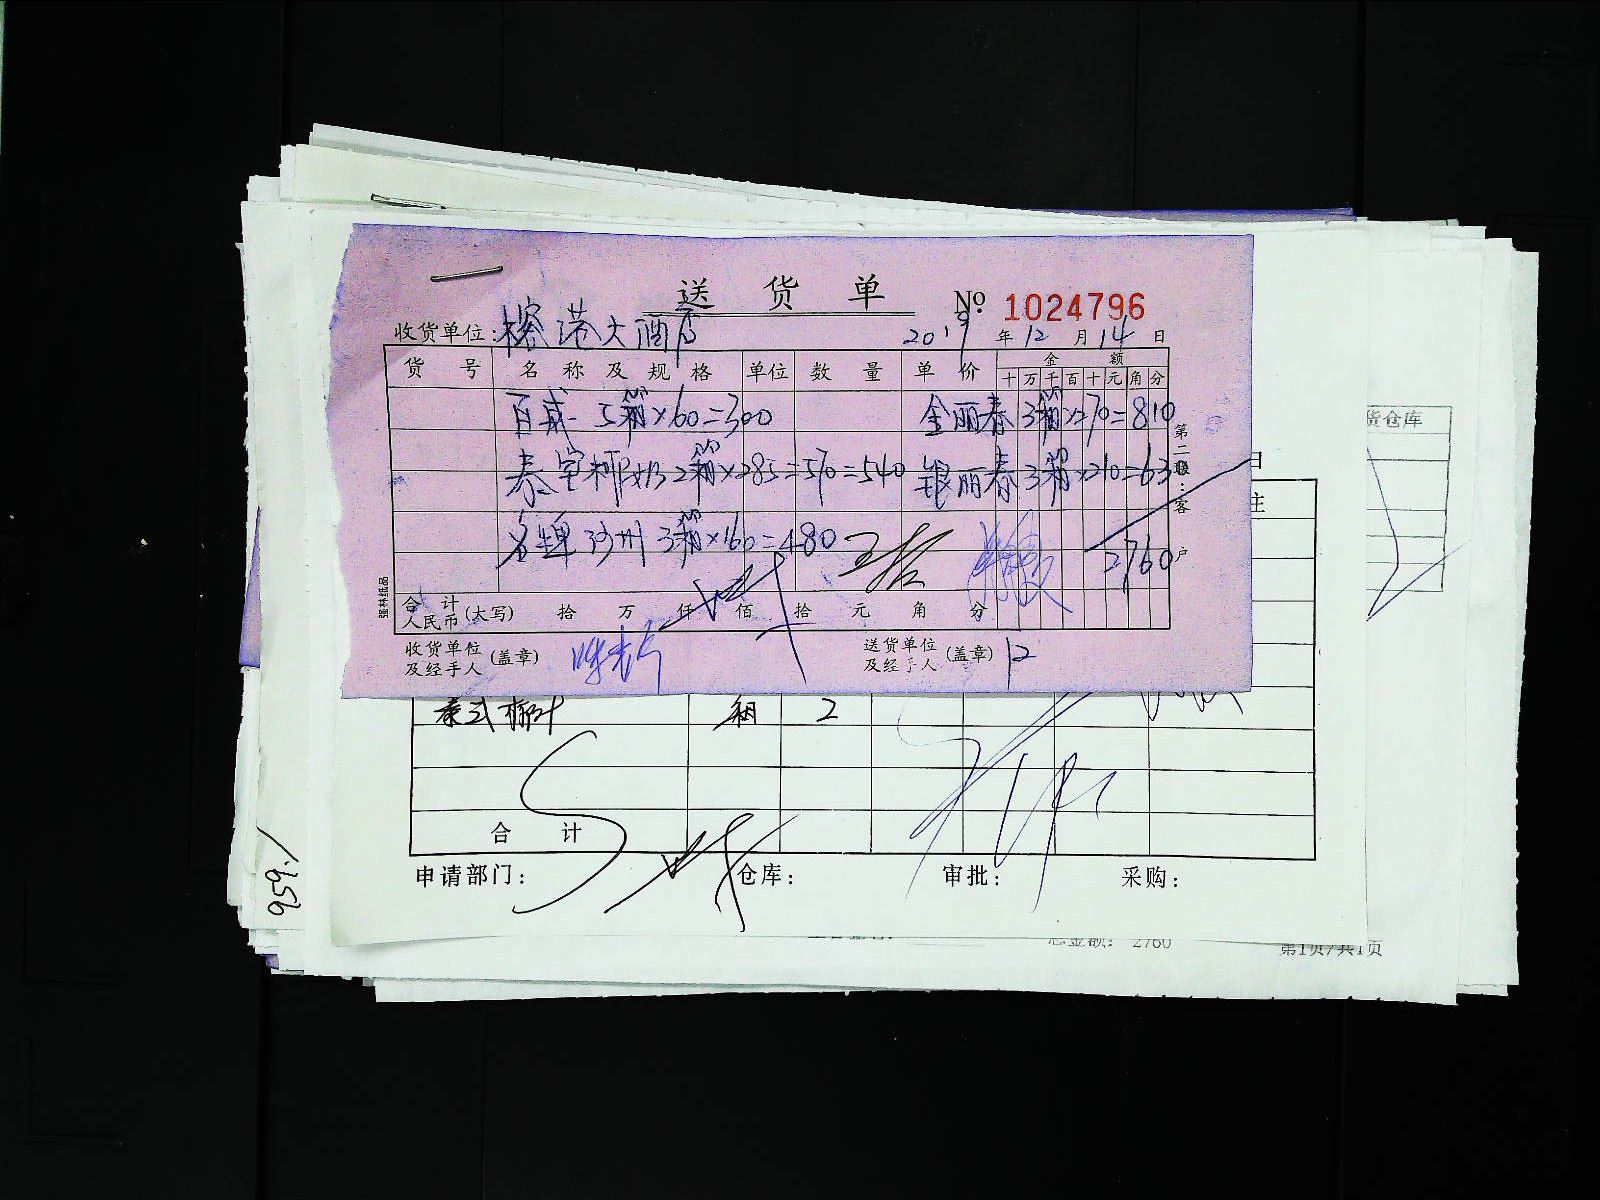 送货单 № 1024796
收货单位: 榕港大酒店 2019年12月14日
货号 名称及规格 单位 数量 单价 金额
十万千百十元角分
百威 5箱×60=300 金丽春 3箱×270=810
2箱×285=570=540 银丽春 3箱×210=63
名牌沙州 3箱×160=480
2760
合计人民币(大写) 拾 万 仟 佰 拾 元 角 分
收货单位及经手人(盖章) 送货单位及经手人(盖章) 12
第二联:客户
强林纸品
货仓库
日
注
泰式椰汁 箱 2
合计
申请部门: 仓库: 审批: 采购:
总金额: 2760
第1页/共1页